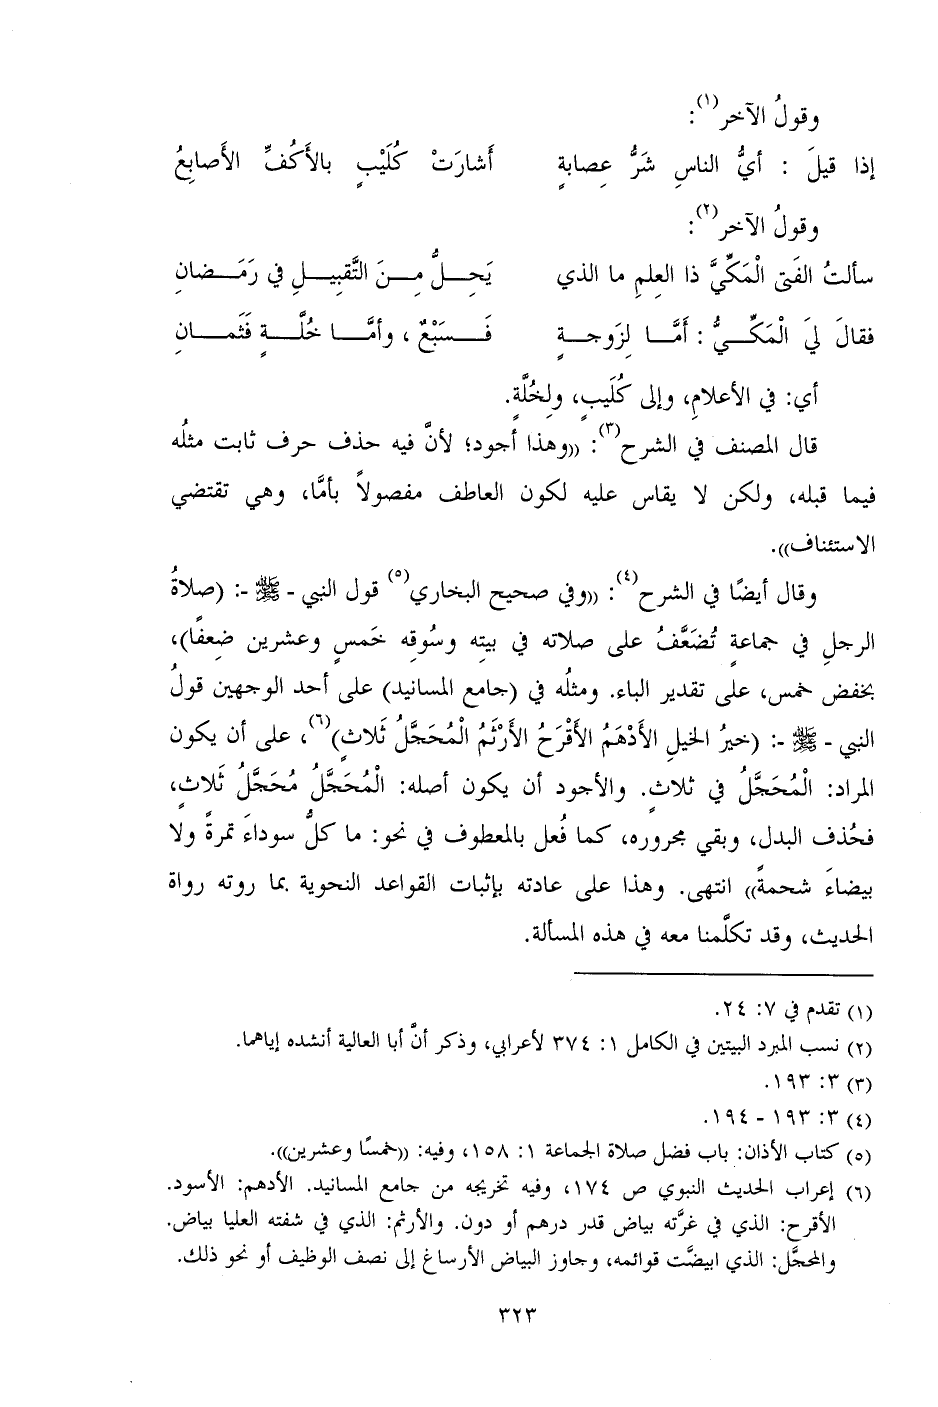 وقولُ الآخر(١):
إذا قيلَ : أيُّ الناسِ شَرُّ عِصابةٍ أَشارَتْ كُلَيْبٍ بالأَكُفِّ الأَصابِعُ
وقولُ الآخر(٢):
سألتُ الفَتى الْمَكِّيَّ ذا العِلمِ ما الذي يَحِـــلُّ مِـــنَ التَّقبيـــلِ في رَمَـــضانِ
فقالَ لِيَ الْمَكِّـــيُّ : أَمَّـــا لِزَوجـــةٍ فَـــسَبْعٌ ، وأمَّـــا خُلَّـــةٍ فَثَمـــانِ
أي: في الأعلامِ، وإلى كُلَيبٍ، ولِخُلَّةٍ.
قال المصنف في الشرح(٣): ((وهذا أجود؛ لأنَّ فيه حذف حرف ثابت مثلُه
فيما قبله، ولكن لا يقاس عليه لكون العاطف مفصولاً بأمَّا، وهي تقتضي
الاستئناف)).
وقال أيضًا في الشرح(٤): ((وفي صحيح البخاري(٥) قول النبي - ﷺ -: (صلاةُ
الرجلِ في جماعةٍ تُضَعَّفُ على صلاته في بيتِه وسُوقِه خَمسٍ وعشرين ضِعفًا)،
بخفض خمس، على تقدير الباء. ومثلُه في (جامع المسانيد) على أحد الوجهين قولُ
النبي - ﷺ -: (خيرُ الخيلِ الأَدْهَمُ الأَقْرَحُ الأَرْثَمُ الْمُحَجَّلُ ثَلاثٍ)(٦)، على أن يكون
المراد: الْمُحَجَّلُ في ثلاثٍ. والأجود أن يكون أصله: الْمُحَجَّلُ مُحَجَّلُ ثَلاثٍ،
فحُذف البدل، وبقي مجروره، كما فُعل بالمعطوف في نحو: ما كلُّ سوداءَ تمرةً ولا
بيضاءَ شحمةً)) انتهى. وهذا على عادته بإثبات القواعد النحوية بما روته رواة
الحديث، وقد تكلَّمنا معه في هذه المسألة.
(١) تقدم في ٧: ٢٤.
(٢) نسب المبرد البيتين في الكامل ١: ٣٧٤ لأعرابي، وذكر أنَّ أبا العالية أنشده إياهما.
(٣) ٣: ١٩٣.
(٤) ٣: ١٩٣ - ١٩٤.
(٥) كتاب الأذان: باب فضل صلاة الجماعة ١: ١٥٨، وفيه: ((خمسًا وعشرين)).
(٦) إعراب الحديث النبوي ص ١٧٤، وفيه تخريجه من جامع المسانيد. الأدهم: الأسود.
الأقرح: الذي في غرَّته بياض قدر درهم أو دون. والأرثم: الذي في شفته العليا بياض.
والمحجَّل: الذي ابيضَّت قوائمه، وجاوز البياض الأرساغ إلى نصف الوظيف أو نحو ذلك.
٣٢٣